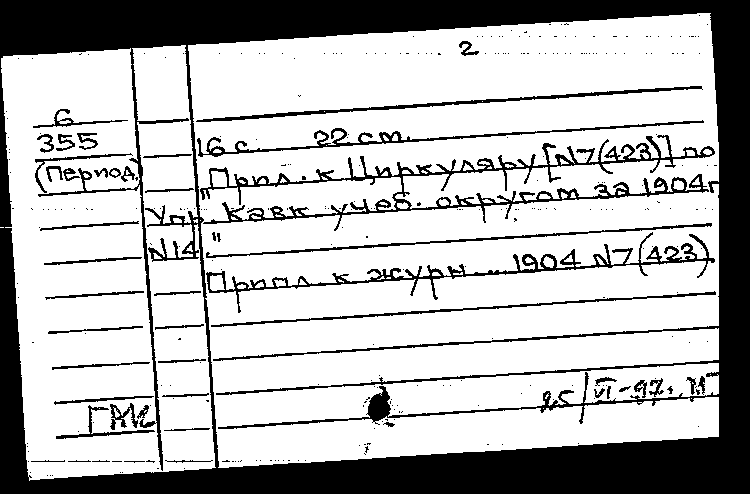 2
Б
355
(Период.)
16 с. 22 cm.
"Прил. к Циркуляру [N7(423)] по
Упр. Кавк. учеб. округом за 1904г
N14."
Припл. к журн... 1904 N7(423).
25/VI-97г.